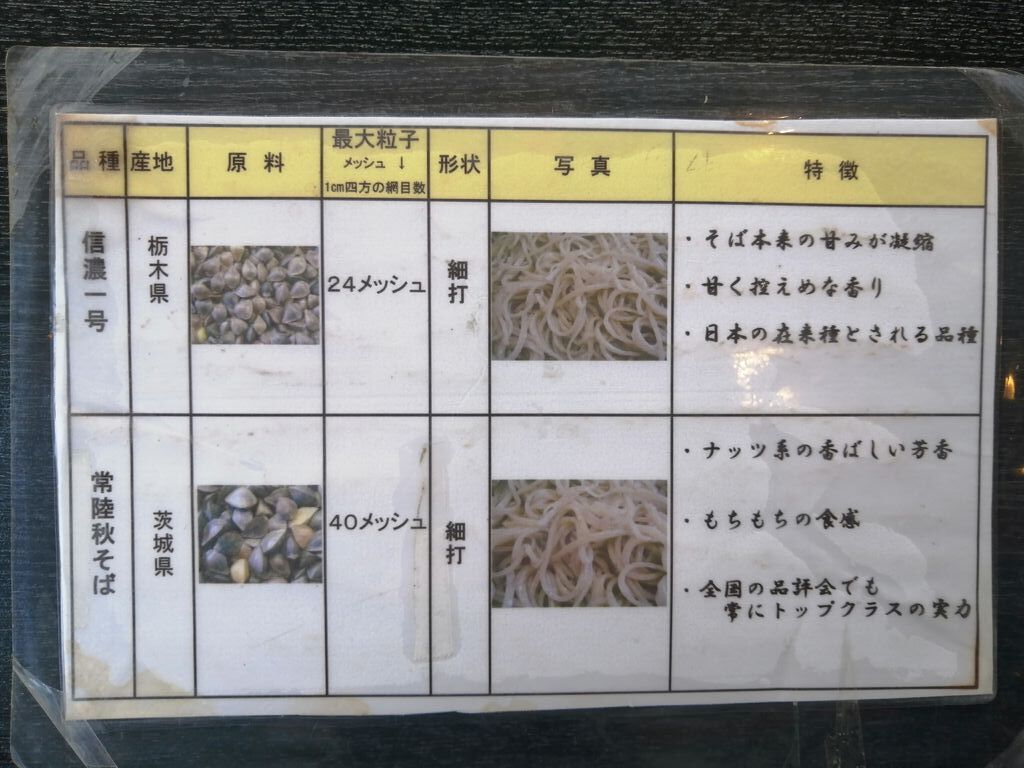 品種
産地
原料
最大粒子
メッシュ ↓
1cm四方の網目数
形状
写真
特徴
信濃一号
栃木県
24メッシュ
細打
・そば本来の甘みが凝縮
・甘く控えめな香り
・日本の在来種とされる品種
常陸秋そば
茨城県
40メッシュ
細打
・ナッツ系の香ばしい芳香
・もちもちの食感
・全国の品評会でも
常にトップクラスの実力